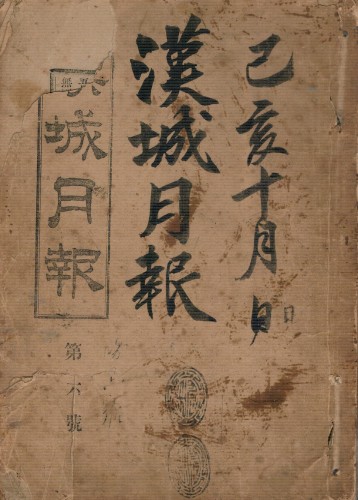 己亥十月日
漢城月報
城月報
第六號